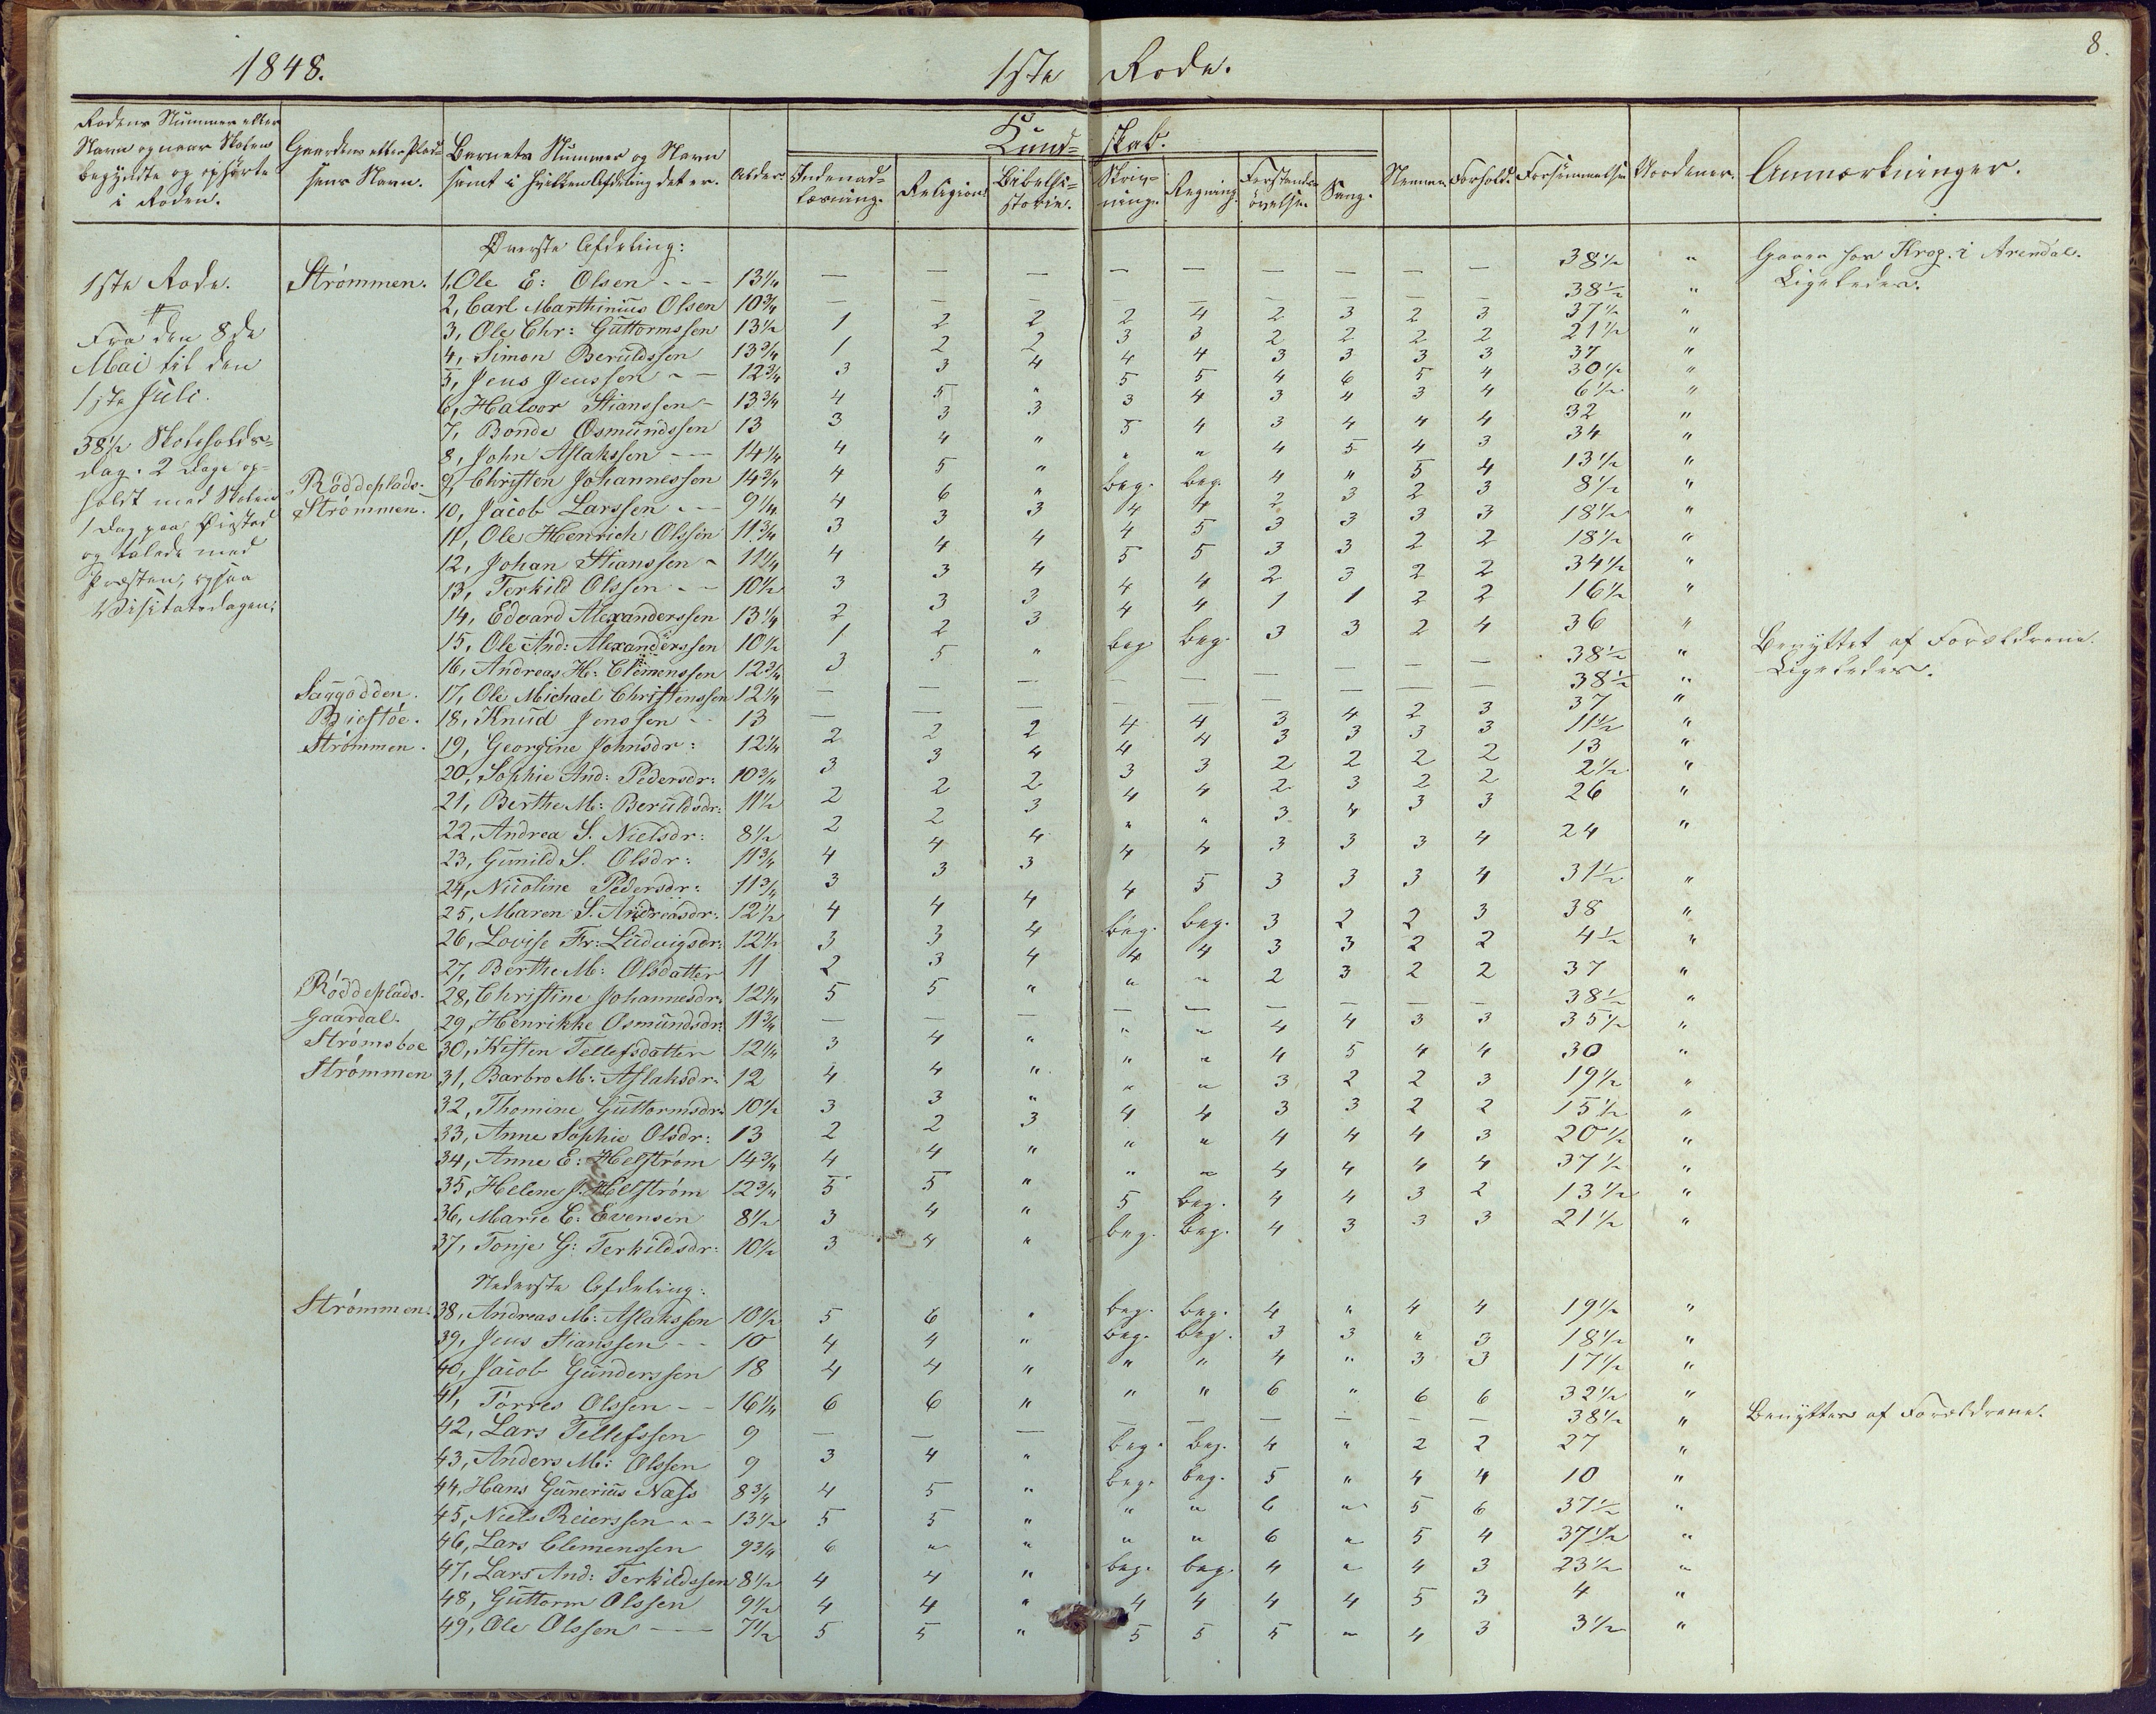 1848.
1ste Rode.
8.
Rodens Nummer eller Navn og naar Skolen begyndte og ophørte i Roden.
Gaardens eller Pladsens Navn.
Barnets Nummer og Navn samt i hvilken Afdeling det er.
Alder.
Kundskab.
Indenadlæsning.
Religion.
Bibelhistorie.
Skrivning.
Regning.
Forstandsøvelse
Sang.
Nemme.
Forhold.
Forsømmelse
Anmærkninger.
1ste Rode.
Fra den 8de
Mai til den
1ste Juli.
38½ Skoleholds-
dag. 2 Dage op-
holdt med Skolen
1 Dag paa Øiestad
og talede med
Præsten, ogsaa
Visitatsdagen.
Øverste Afdeling:
Strømmen. 1, Ole E: Olsen - - - 13¼ — — — — — — — — — 38½ " Gaaer hos Krog. i Arendal.
2, Carl Marthinius Olsen 10¾ — — — — — — — — — 38½ " Ligeledes.
3, Ole Chr: Guttormssen 13½ 1 2 2 2 4 2 3 2 3 37½ "
4, Simon Beruldssen 13¾ 1 2 2 3 3 2 2 2 2 21½ "
5, Jens Jenssen - - 12¾ 3 3 4 4 4 3 3 3 3 37 "
6, Halvor Stianssen - 13¾ 4 5 " 5 5 4 6 5 4 30½ "
7, Bonde Osmundssen 13 3 3 3 3 4 3 4 3 4 6½ "
8, John Aslakssen - - 14¼ 4 4 " 5 4 3 4 4 4 32 "
Røddeplads. 9, Christen Johannessen 14¾ 4 5 " " " 4 5 4 3 34 "
Strømmen. 10, Jacob Larssen - - - 9¼ 4 6 " beg. beg. 4 " 5 4 13½ "
11, Ole Henrich Olssøn 11¾ 3 3 3 4 4 2 3 2 3 8½ "
12, Johan Stianssen - 11¼ 4 4 4 4 5 3 3 3 3 18½ "
13, Terkild Olssen - - 10½ 3 3 4 5 5 3 3 2 2 18½ "
14, Edvard Alexanderssen 13¼ 2 3 3 4 4 2 3 2 2 34½ "
15, Ole And: Alexanderssen 10½ 1 2 3 4 4 1 1 2 2 16½ "
16, Andreas H. Clemenssen 12¾ 3 5 " beg. beg. 3 3 2 4 36 "
Saggodden. 17, Ole Michael Christenssen 12¼ — — — — — — — — — 38½ " Benyttet af Forældrene.
18, Knud Jenssen - - 13 — — — — — — — — — 38½ " Ligeledes.
Strømmen. 19, Georgine Johnsdr: 12¼ 2 2 2 4 4 3 4 2 3 37 "
20, Sophie And: Pedersdr: 10¾ 3 3 4 4 4 3 3 3 3 11½ "
21, Berthe M: Beruldsdr: 11½ 2 2 2 3 3 2 2 2 2 13 "
22, Andrea S. Nielsdr: 8½ 2 2 3 4 4 2 3 2 2 2½ "
23, Gunild S. Olsdr: 11¾ 4 4 4 " " 3 4 3 3 26 "
24, Nicoline Pedersdr: 11¾ 3 3 3 4 4 3 3 3 4 24 "
25, Maren S. Andreasdr: 12½ 4 4 4 4 5 3 3 3 4 31½ "
26, Lovise Fr: Ludvigsdr: 12½ 3 3 4 beg. beg. 3 2 2 3 38 "
27, Berthe M: Olsdatter 11 2 3 4 4 4 3 3 2 2 4½ "
Røddeplads. 28, Christine Johannesdr: 12¼ 5 5 " " " 2 3 2 2 37 "
Gaardal. 29, Henrikke Osmundsdr: 11¾ — — — — — — — — — 38½ "
Strømsboe 30, Kisten Tellefsdatter 12¼ 3 4 " " " 4 4 3 3 35½ "
Strømmen 31, Barbro M: Aslaksdr: 12 4 4 " " " 4 5 4 4 30 "
32, Thomine Guttormsdr: 10½ 3 3 " " " 3 2 2 3 19½ "
33, Anne Sophie Olsdr: 13 2 2 3 4 4 3 3 2 2 15½ "
34, Anne E: Helstrøm 14¾ 4 4 " " " 4 4 4 3 20½ "
35, Helene J. Helstrøm 12¾ 5 5 " " " 4 4 4 4 37½ "
36, Marie C: Evensen 8½ 3 4 " 5 beg. 4 4 3 2 13½ "
37, Tonje G: Terkildsdr: 10½ 3 4 " beg. beg. 4 3 3 3 21½ "
Nederste Afdeling:
Strømmen: 38, Andreas M: Aslakssen 10½ 5 6 " beg. beg. 4 " 4 4 19½ "
39, Jens Stianssen - - 10 4 4 " beg. beg. 3 3 " 3 18½ "
40, Jacob Gunderssen 18 4 4 " " " 4 " 3 3 17½ "
41, Torres Olssen - - 16¼ 6 6 " " " 6 " 6 6 32½ "
42, Lars Tellefssen 9 — — — — — — — — — 38½ " Benyttes af Forældrene.
43, Anders M: Olssen 9 3 4 " beg. beg. 4 " 2 2 27 "
44, Hans Gunerius Næss 8¾ 4 5 " beg. beg. 5 " 4 4 10 "
45, Niels Reierssen - - 13½ 5 5 " " " 6 " 5 6 37½ "
46, Lars Clemenssen 9¾ 6 " " " " 6 " 5 4 37½ "
47, Lars And: Terkildssen 8½ 4 4 " beg. beg. 4 " 4 3 23½ "
48, Guttorm Olssen 9½ 4 4 " 4 4 4 4 5 3 4 "
49, Ole Olssen — 7½ 5 5 " 5 5 5 " 4 3 3½ "